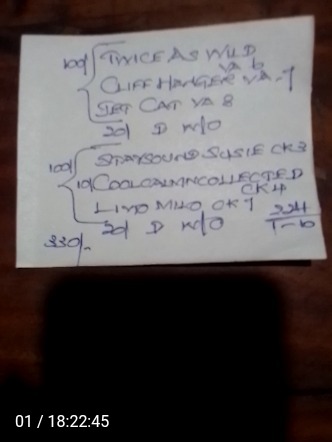 100/ TWICE AS WILD
YA 6
CLIFF HANGER YA-7
JET CAT YA 8
20/ D W/O
100/ STAYSOUND SUSIE CK3
10/ COOLCALMNCOLLECTED
CK4
LIMO MILO CK7
20/ D W/O
330/-
224
T-6
01 / 18:22:45